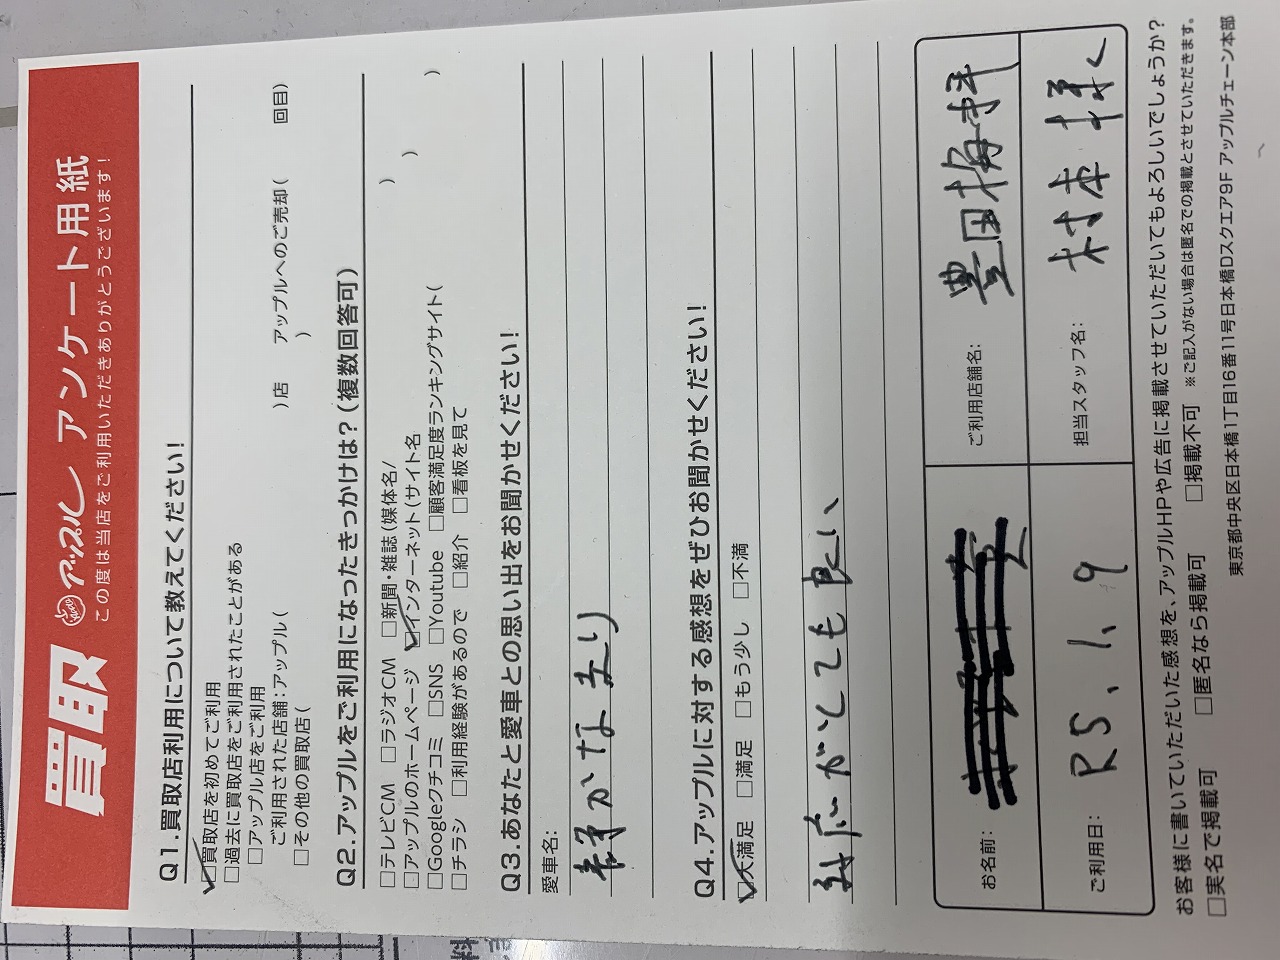 買取 アップル アンケート用紙
この度は当店をご利用いただきありがとうございます!
Q1.買取店利用について教えてください!
☑買取店を初めてご利用
□過去に買取店をご利用されたことがある
□アップル店をご利用
ご利用された店舗:アップル( )店 アップルへのご売却( 回目)
□その他の買取店( )
Q2.アップルをご利用になったきっかけは?(複数回答可)
□テレビCM □ラジオCM □新聞・雑誌(媒体名/ )
□アップルのホームページ ☑インターネット(サイト名 )
□Googleクチコミ □SNS □Youtube □顧客満足度ランキングサイト( )
□チラシ □利用経験があるので □紹介 □看板を見て
Q3.あなたと愛車との思い出をお聞かせください!
愛車名:
静かな走り
Q4.アップルに対する感想をぜひお聞かせください!
☑大満足 □満足 □もう少し □不満
対応がとても良い
お名前:
ご利用店舗名: 豊田梅坪
ご利用日: R5.1.9
担当スタッフ名: 村本様
お客様に書いていただいた感想を、アップルHPや広告に掲載させていただいてもよろしいでしょうか?
□実名で掲載可 □匿名なら掲載可 □掲載不可 ※ご記入がない場合は匿名での掲載とさせていただきます。
東京都中央区日本橋1丁目16番11号日本橋Dスクエア9F アップルチェーン本部